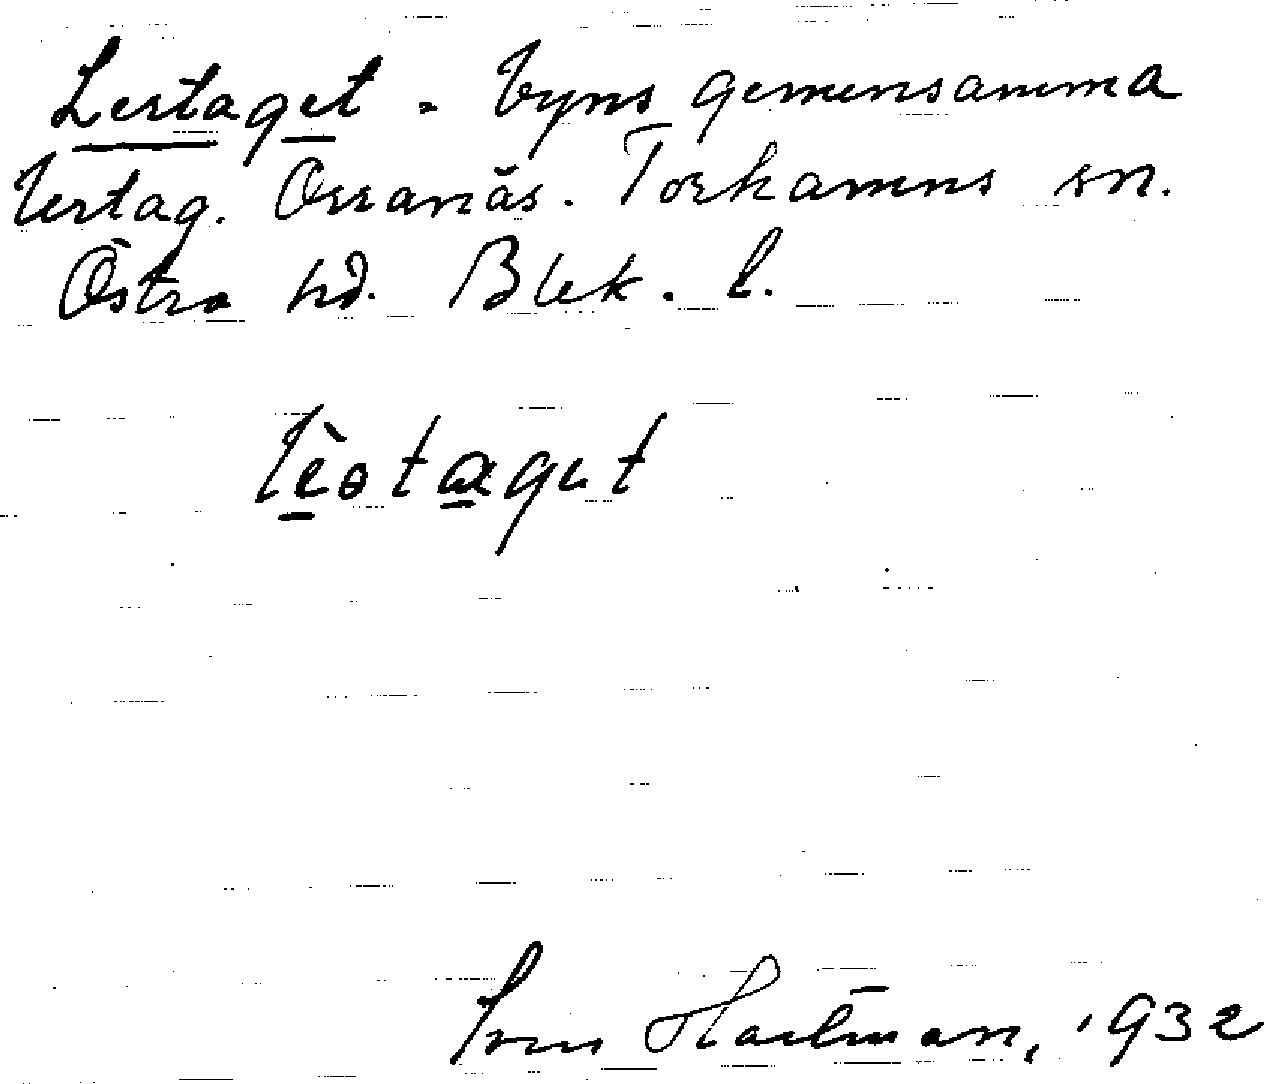 Lertaget = byns gemensamma
lertag. Orranäs. Torhamns sn.
Östra hd. Blek. l.
Sven Hartman, 1932